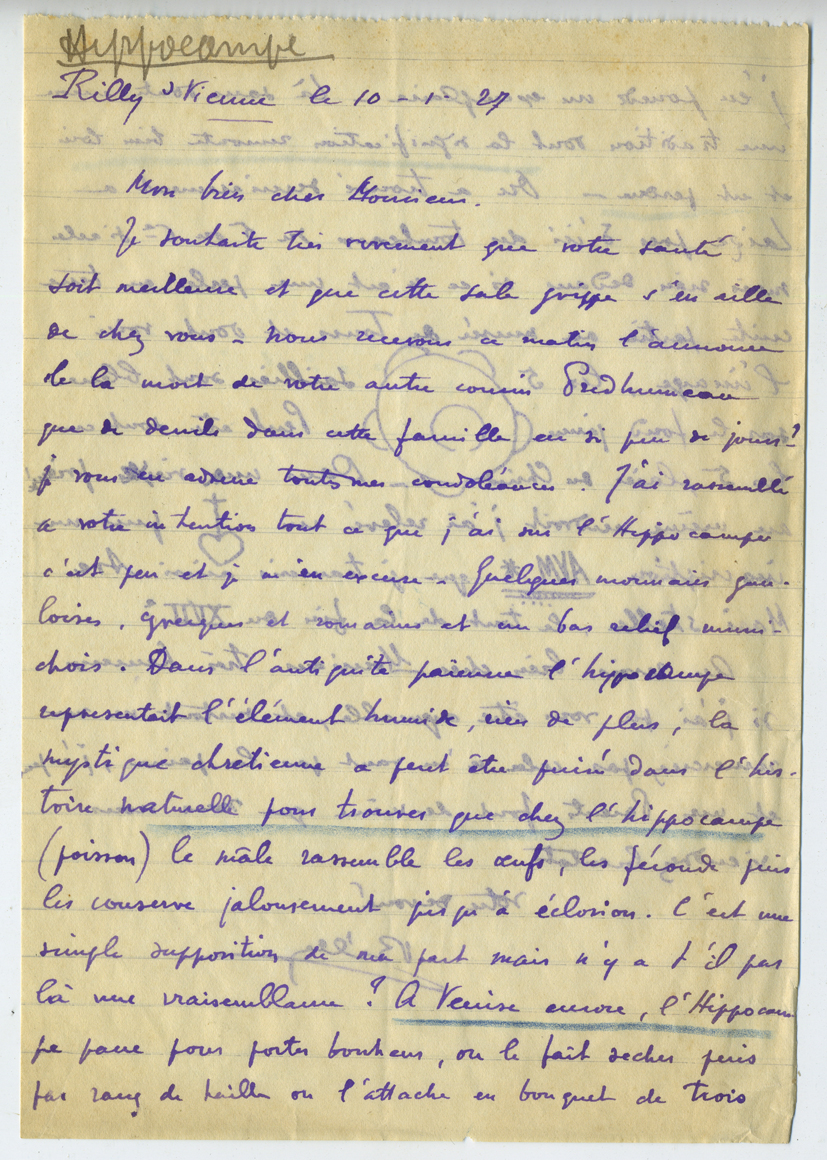 Hippocampe
Rilly s/Vienne le 10 - 1 - 27
Mon bien cher Monsieur.
Je souhaite très vivement que votre santé
soit meilleure et que cette sale grippe s'en aille
de chez vous - Nous recevons ce matin l'annonce
de la mort de votre autre cousin Prudhumeau
que de deuils dans cette famille en si peu de jours !
je vous en adresse toutes mes condoléances. J'ai rassemblé
a votre intention tout ce que j'ai sur l'Hippocampe
c'est peu et je m'en excuse - Quelques monnaies gau-
loises, grecques et romaines et un bas relief
chois. Dans l'antiquité païenne l'hippocampe
représentait l'élément humide, rien de plus, la
mystique chrétienne a peut être puisé dans l'his-
toire naturelle pour trouver que chez l'hippocampe
(poisson) le mâle rassemble les œufs, les féconde puis
les conserve jalousement jusqu'à éclosion. C'est une
simple supposition de ma part mais n'y a t'il pas
là une vraisemblance ? A Venise encore, l'Hippocam
pe passe pour porter bonheur, on le fait secher puis
par rang de taille on l'attache en bouquet de trois